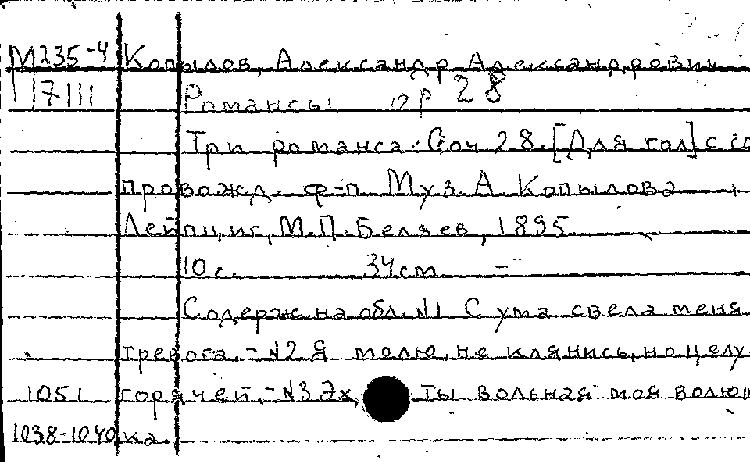 М235-4 Копылов, Александр Александрович
7111 Романсы ор 28
Три романса. Соч 28. [Для гол] с со
провожд. ф-п. Муз. А Копылова
Лейпциг, М.П. Беляев, 1895
10 с. 34 см. =
Содерж на обл. №1 С ума свела меня
тревога. - №2 Я молю, не клянись, но целу
1051 горячей. - №3 Эх, ты вольная моя волюш
1038-1040 ка.